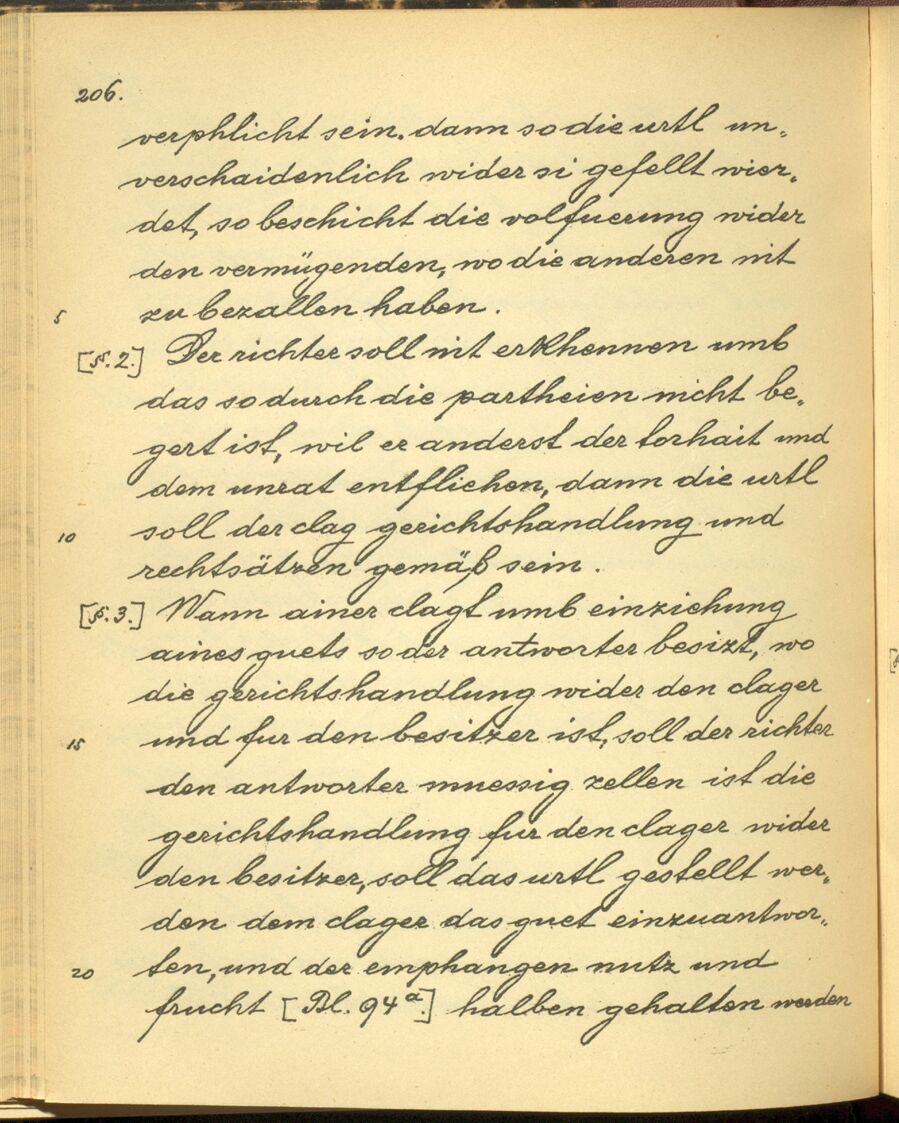 206.
verphlicht sein. dann so die urtl un„
verschaidenlich wider si gefellt wier„
det, so beschicht die volfuerung wider
den vermügenden, wo die anderen nit
5 zu bezallen haben.
[§. 2.] Der richter soll nit erkhennen umb
das so durch die partheien nicht be„
gert ist, wil er anderst der torhait und
dem unrat entfliehen, dann die urtl
10 soll der clag gerichtshandlung und
rechtsätzen gemäß sein.
[§. 3.] Wann ainer clagt umb einziehung
aines guets so der antworter besizt, wo
die gerichtshandlung wider den clager
15 und fur den besitzer ist, soll der richter
den antworter muessig zellen ist die
gerichtshandlung fur den clager wider
den besitzer, soll das urtl gestellt wer„
den dem clager das guet einzuantwor„
20 ten, und der emphangen nutz und
frucht [Bl. 94ª.] halben gehalten werden